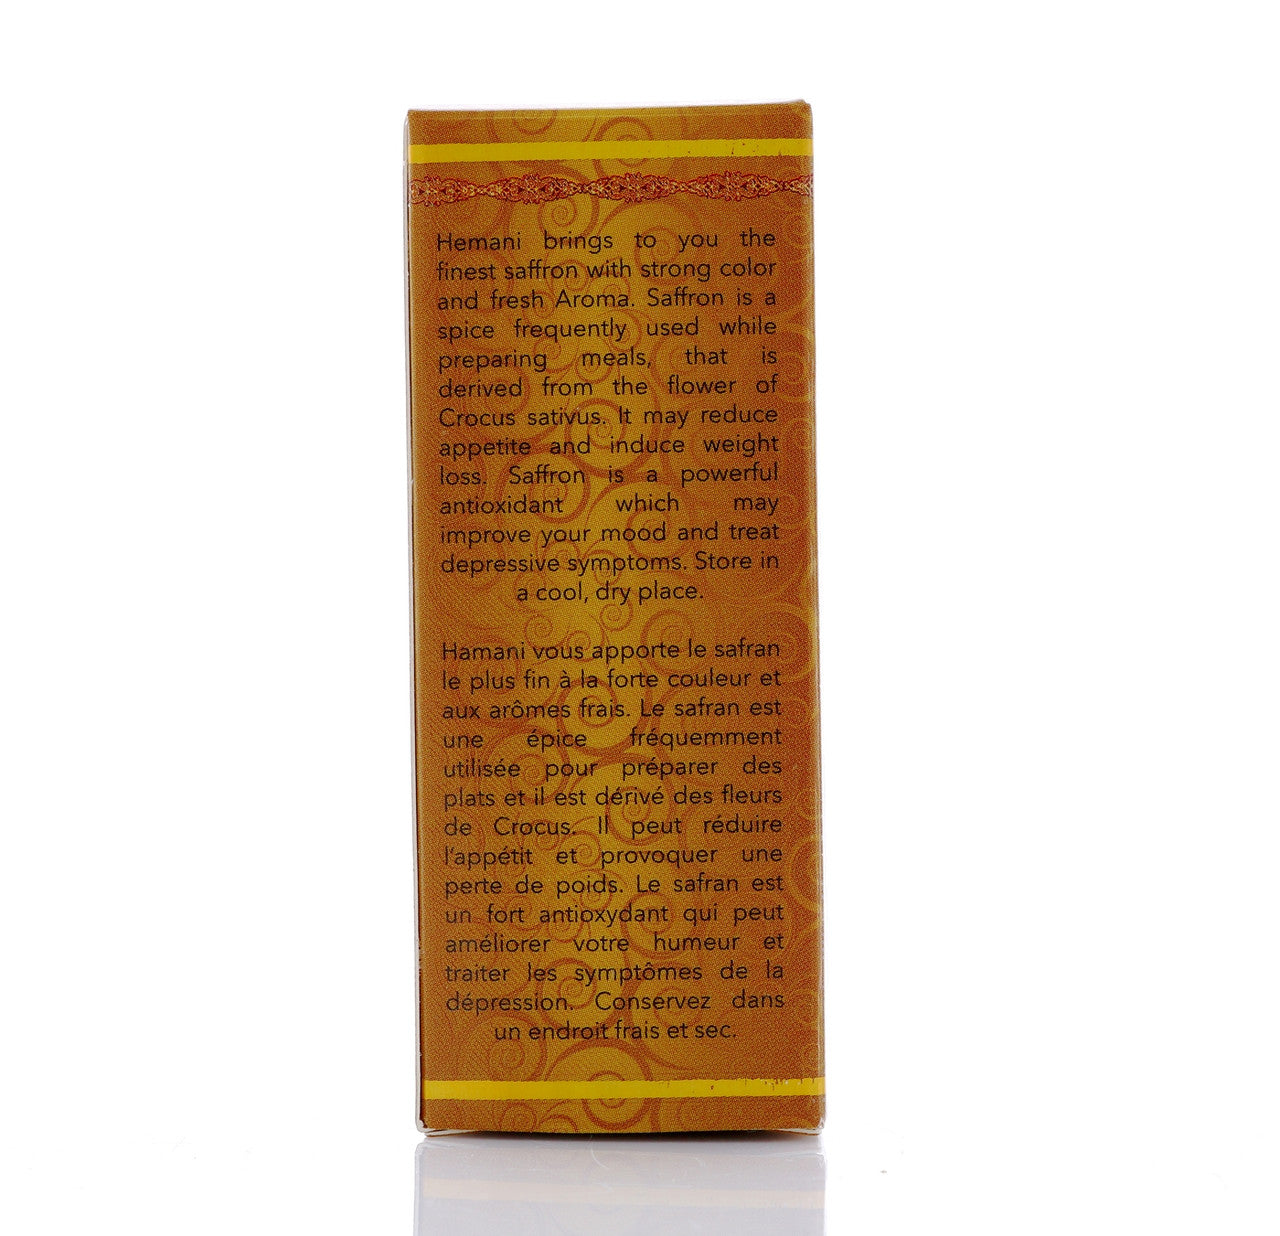 Hemani brings to you the
finest saffron with strong color
and fresh Aroma. Saffron is a
spice frequently used while
preparing meals, that is
derived from the flower of
Crocus sativus. It may reduce
appetite and induce weight
loss. Saffron is a powerful
antioxidant which may
improve your mood and treat
depressive symptoms. Store in
a cool, dry place.
Hamani vous apporte le safran
le plus fin à la forte couleur et
aux arômes frais. Le safran est
une épice fréquemment
utilisée pour préparer des
plats et il est dérivé des fleurs
de Crocus. Il peut réduire
l'appétit et provoquer une
perte de poids. Le safran est
un fort antioxydant qui peut
améliorer votre humeur et
traiter les symptômes de la
dépression. Conservez dans
un endroit frais et sec.